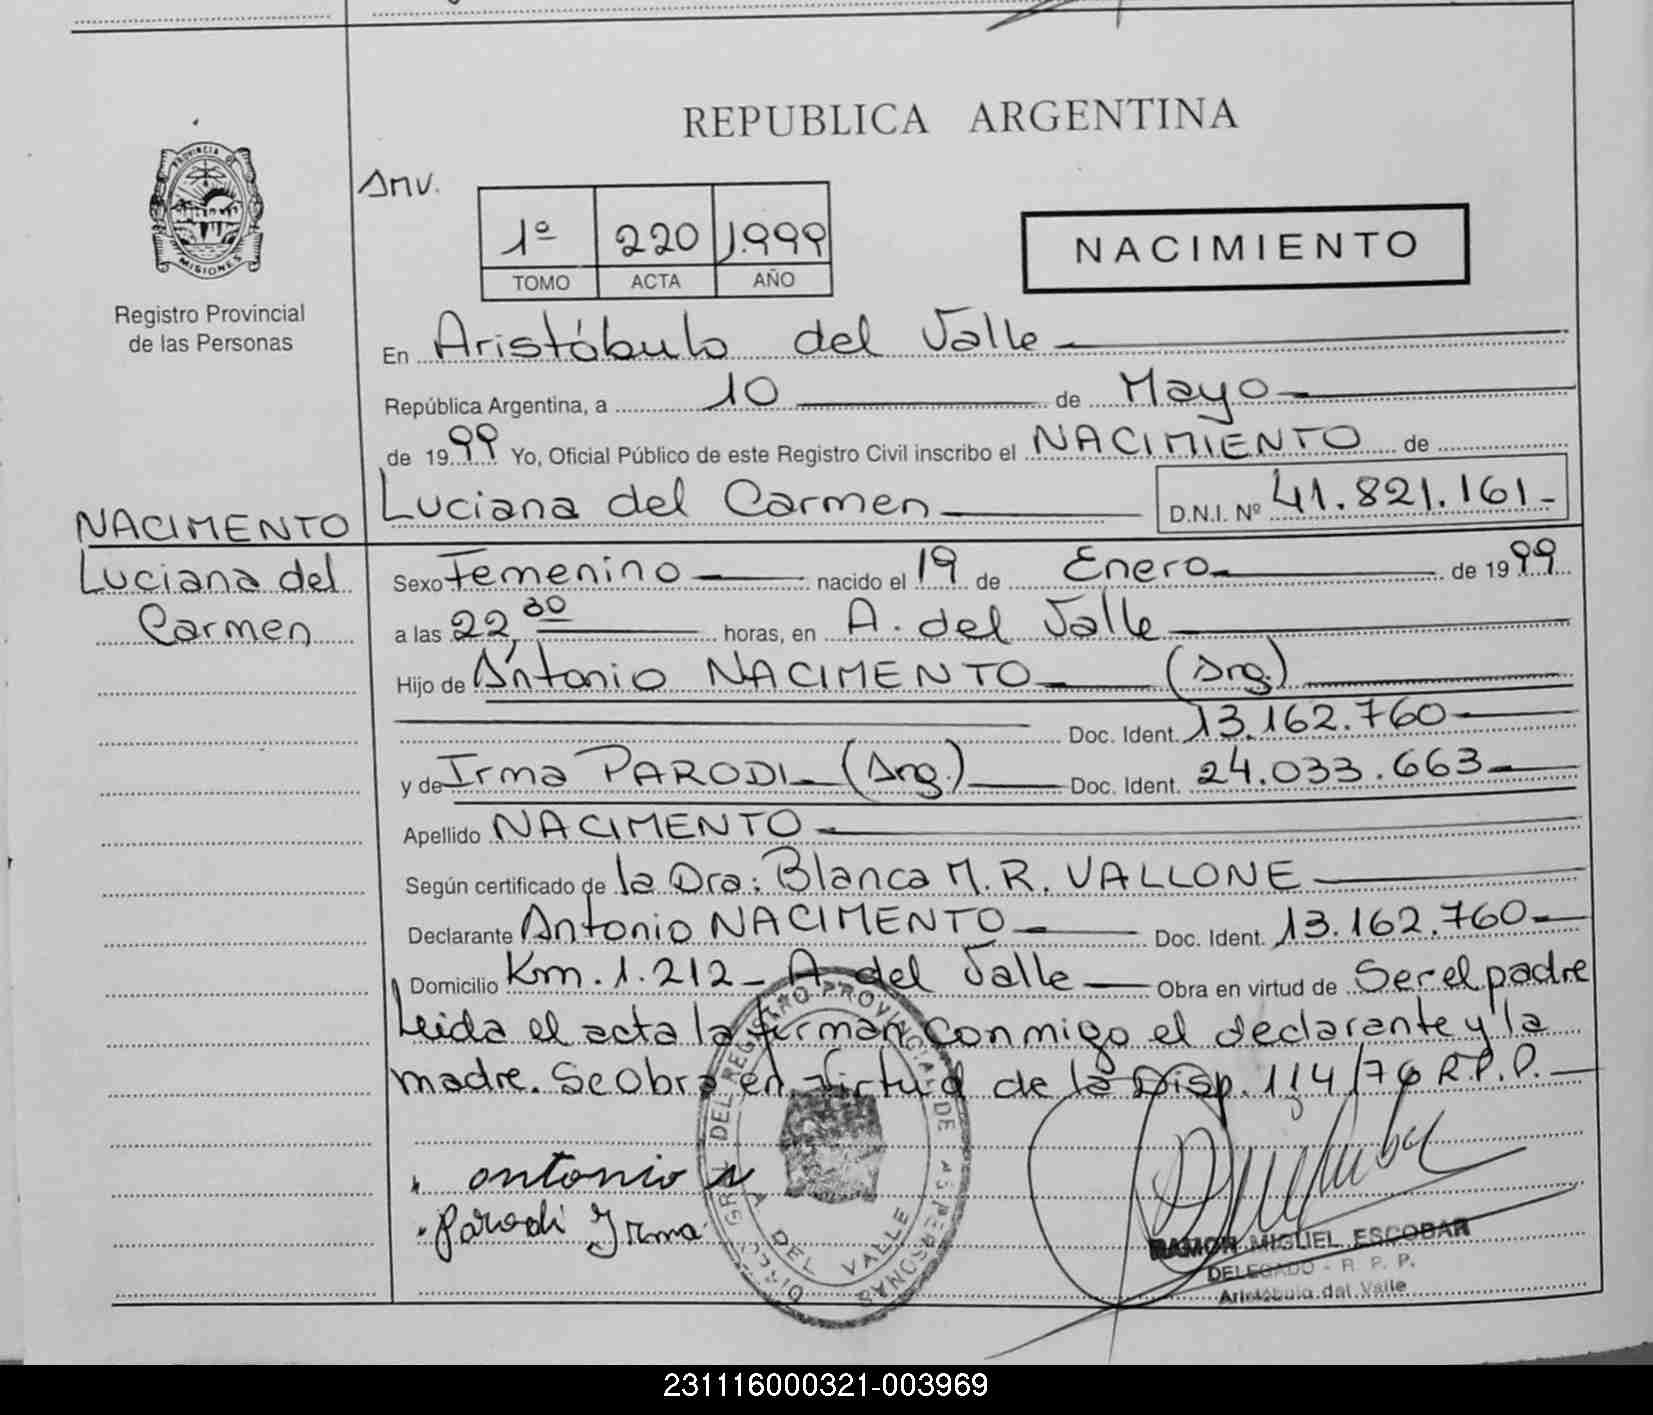 REPUBLICA ARGENTINA
PROVINCIA DE
MISIONES
Registro Provincial
de las Personas
Anv.
1º 220 1.999
TOMO ACTA AÑO
NACIMIENTO
En Aristóbulo del Valle
República Argentina, a 10 de Mayo
de 1999 Yo, Oficial Público de este Registro Civil inscribo el NACIMIENTO de
Luciana del Carmen D.N.I. Nº 41.821.161-
NACIMENTO
Luciana del
Carmen
Sexo Femenino nacido el 19 de Enero de 1999
a las 22,30 horas, en A. del Valle
Hijo de Antonio NACIMENTO (Arg.)
Doc. Ident. 13.162.760
y de Irma PARODI (Arg.) Doc. Ident. 24.033.663
Apellido NACIMENTO
Según certificado de la Dra: Blanca M. R. VALLONE
Declarante Antonio NACIMENTO Doc. Ident. 13.162.760
Domicilio Km. 1.212 - A. del Valle Obra en virtud de Ser el padre
Leida el acta la firman conmigo el declarante y la
madre. Se Obra en virtud de la Disp. 114/76 R.P.P.
antonio N
Parodi Irma
DEL REGISTRO PROVINCIAL DE LAS PERSONAS
A. DEL VALLE
RAMON MIGUEL ESCOBAR
DELEGADO - R. P. P.
Aristóbulo del Valle
231116000321-003969